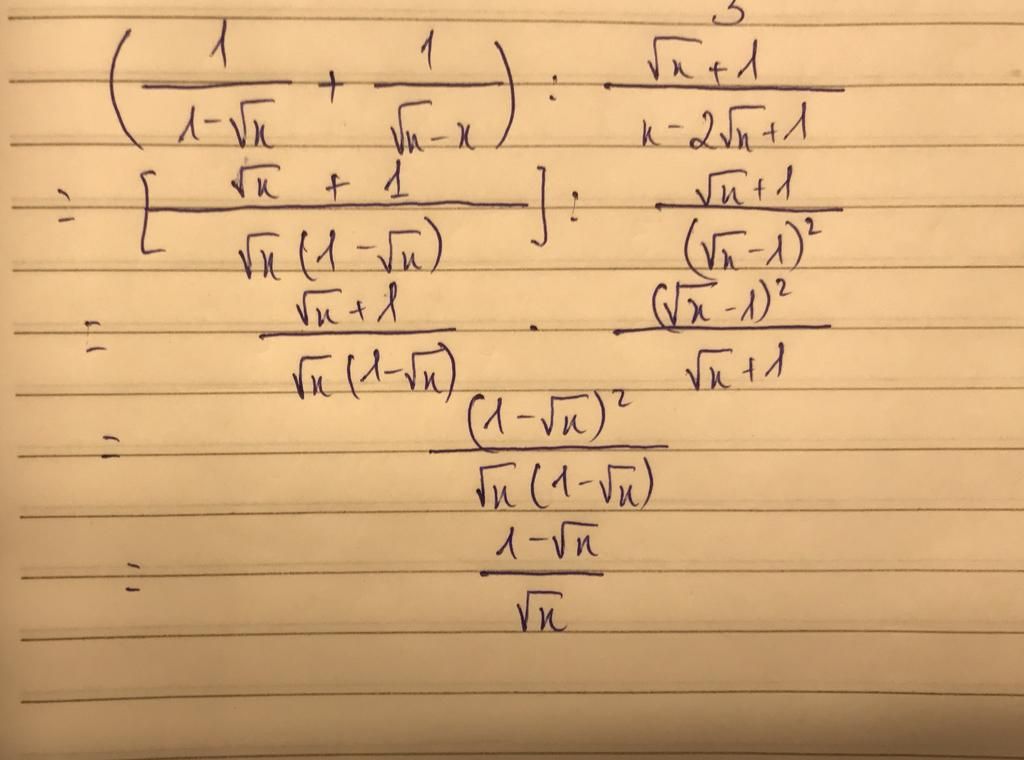 3
( 1/(1-√x) + 1/(√x-x) ) : (√x+1)/(x-2√x+1)
= [ (√x + 1)/(√x(1-√x)) ] : (√x+1)/(√x-1)²
= (√x+1)/(√x(1-√x)) . (√x-1)²/(√x+1)
= (1-√x)²/(√x(1-√x))
= (1-√x)/√x